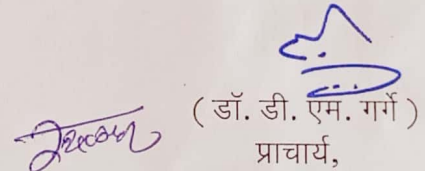 ( डॉ. डी. एम. गर्गे )
प्राचार्य,